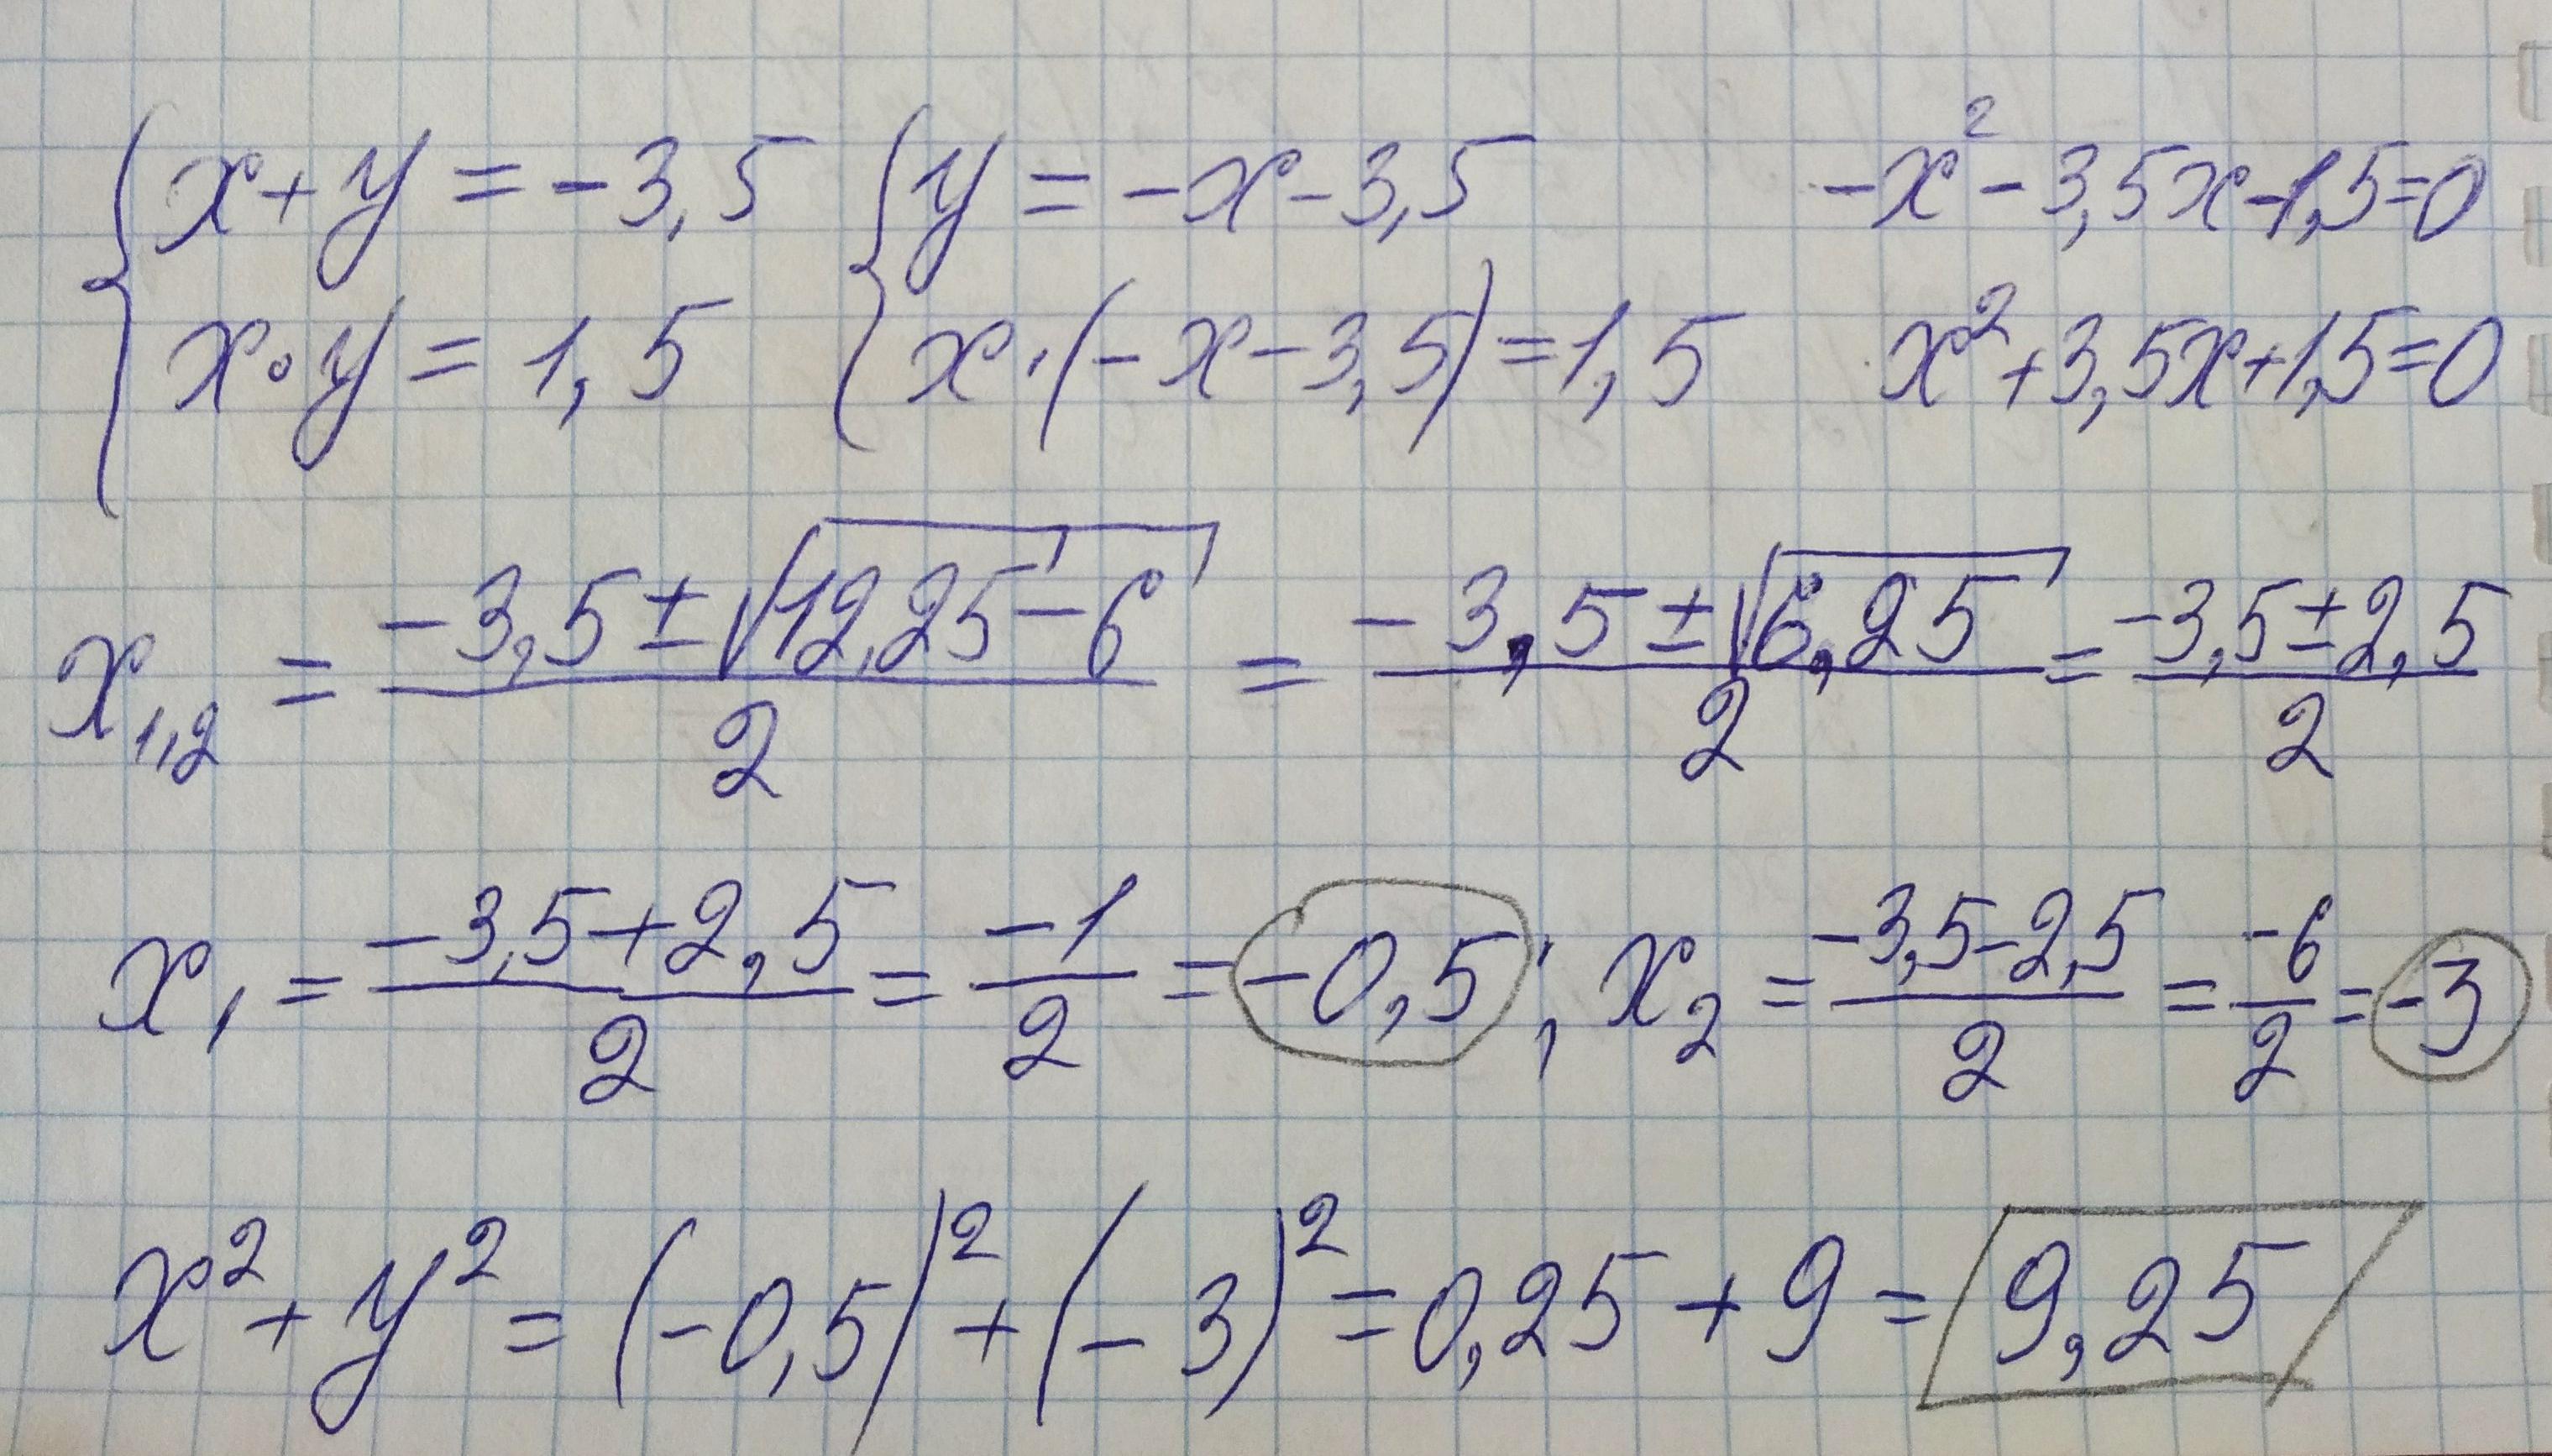 x+y=-3,5 y=-x-3,5 -x²-3,5x-1,5=0
x·y=1,5 x·(-x-3,5)=1,5 x²+3,5x+1,5=0
x₁,₂ = (-3,5±√(12,25-6))/2 = (-3,5±√6,25)/2 = (-3,5±2,5)/2
x₁ = (-3,5+2,5)/2 = -1/2 = -0,5; x₂ = (-3,5-2,5)/2 = -6/2 = -3
x²+y² = (-0,5)²+(-3)² = 0,25+9 = 9,25